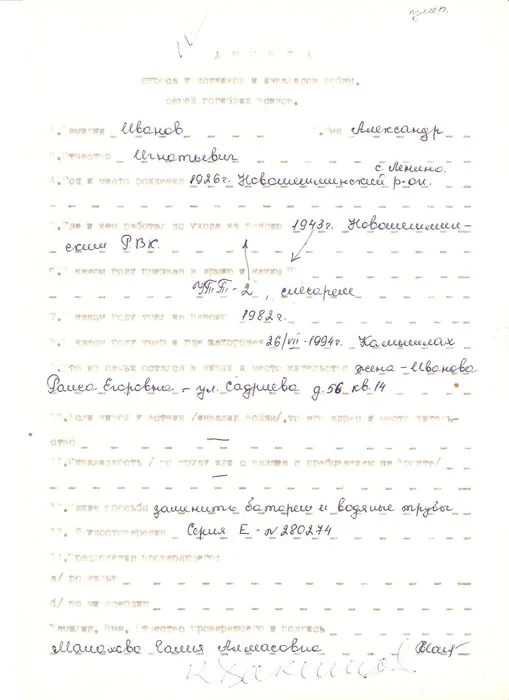 умер.
АНКЕТА
опроса участников и инвалидов войны,
семей погибших воинов.
1. Фамилия Иванов Имя Александр
2. Отчество Игнатьевич
с. Ленино.
4. Год и место рождения 1926г. Новошешминский р-он.
5. Где и кем работал до ухода на пенсию 1943г. Новошешмин-
ским РВК.
6. В каком году призван в армию и каким
УПП-2, слесарем
7. В каком году ушел на пенсию 1982г.
8. В каком году умер и где захоронен 26/VII-1994г. Камышлах
Кто из семьи остался в живых и место жительства жена - Иванова
Раиса Егоровна - ул. Садриева д.56 кв.14
Если живой участник /инвалид войны/, то его адрес и место житель-
ства —
Инвалидность / по труду или связана с пребыванием на фронте/
—
Какие просьбы заменить батареи и водяные трубы
№ удостоверения Серия Е - № 280274
Предложения проверяющего:
а/ по жилью
б/ по
Фамилия, Имя, Отчество проверявшего и подпись
Галия Алмасовна